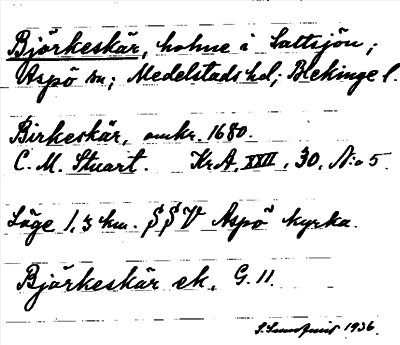 Björkeskär, holme i Saltsjön;
Aspö sn; Medelstads hd; Blekinge l.
Birkeskär, omkr. 1680.
C. M. Stuart. KrA, XXII, 30, N:o 5.
Läge 1,3 km. SSV Aspö kyrka.
Björkeskär ek. G. 11.
1936